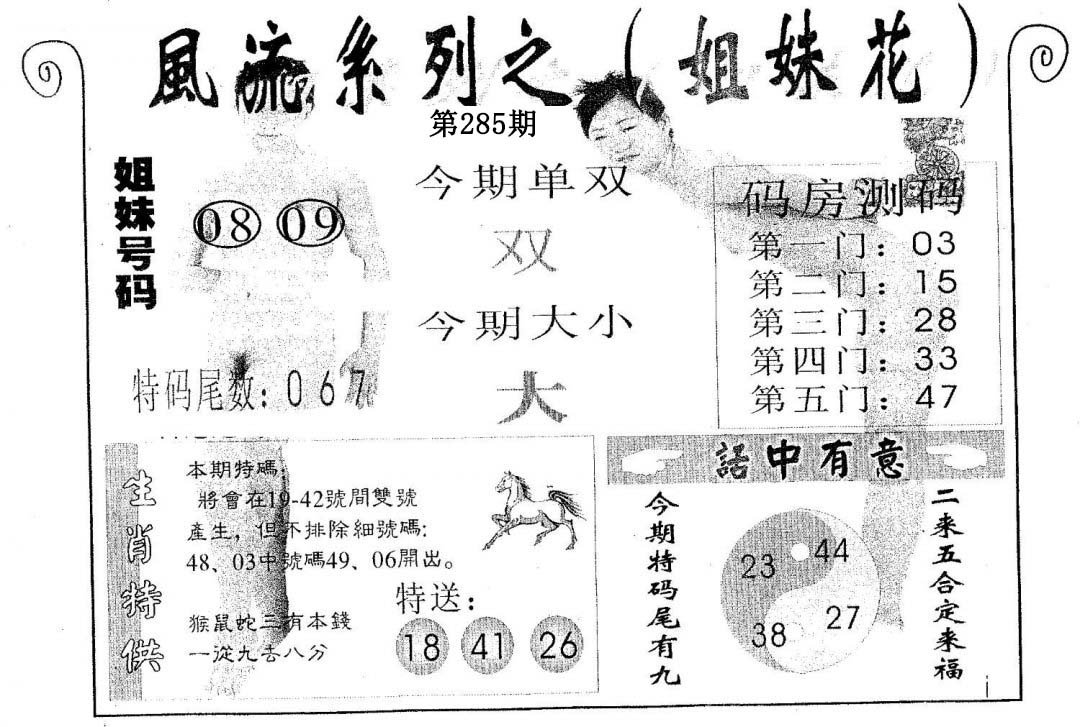 風流系列之(姐妹花)
第285期
姐妹号码
08 09
特码尾数:067
今期单双
双
今期大小
大
码房测码
第一门:03
第二门:15
第三门:28
第四门:33
第五门:47
生肖特供
本期特碼:
將會在19-42號間雙號
產生,但不排除細號碼:
48、03中號碼49、06開出。
猴鼠蛇三有本錢
一從九去八分
特送:
18 41 26
話中有意
今期特码尾有九
23 44
38 27
二来五合定来福